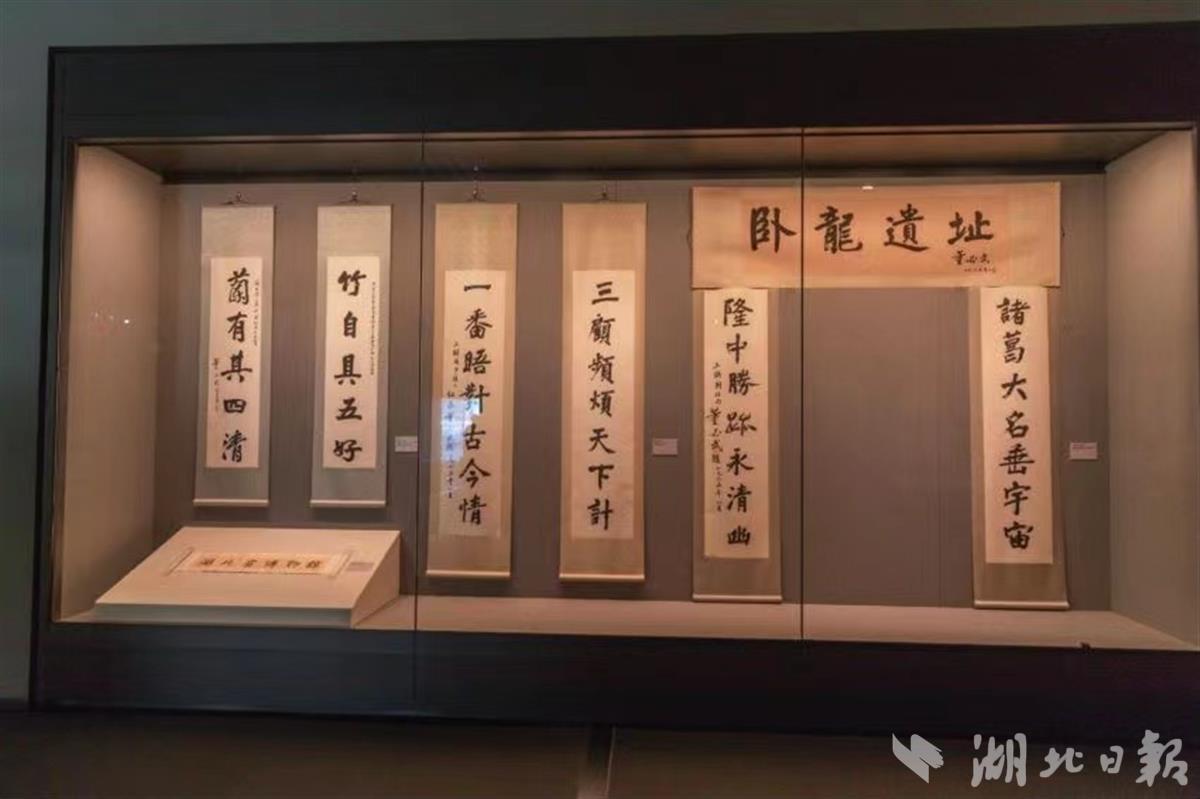 卧龍遺址
董必武
諸葛大名垂宇宙
隆中勝跡永清幽
董必武題
三顧頻煩天下計
一番晤對古今情
竹自具五好
蘭有其四清
湖北省博物館
湖北日報